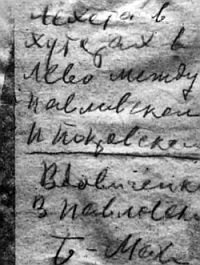 пехота в
хуторах в
лево между
Павловской
и Покровской
Вдовиченк
в Павловск
Б - Мах